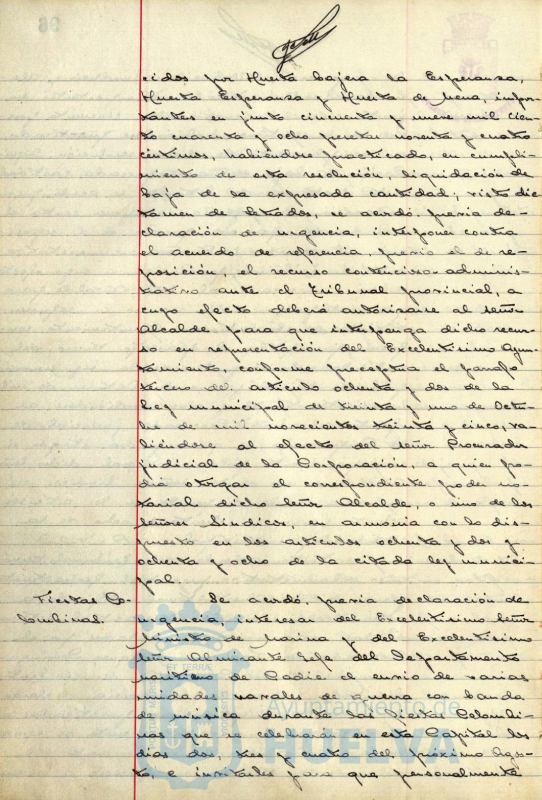 cidos por Huerta bajera la Esperanza,
Huerta Esperanza y Huerta de Mena, impor-
tantes en junto cincuenta y nueve mil cien-
to cuarenta y ocho pesetas noventa y cuatro
céntimos, habiéndose practicado, en cumpli-
miento de esta resolución, liquidación de
baja de la expresada cantidad; visto dic-
tamen de letrados, se acordó, previa de-
claración de urgencia, interponer contra
el acuerdo de referencia, previo el de re-
posición, el recurso contencioso-adminis-
trativo ante el Tribunal provincial, a
cuyo efecto deberá autorizarse al señor
Alcalde para que interponga dicho recur-
so en representación del Excelentísimo Ayun-
tamiento, conforme preceptúa el párrafo
tercero del artículo ochenta y dos de la
Ley municipal de treinta y uno de Octu-
bre de mil novecientos treinta y cinco, va-
liéndose al efecto del señor Procurador
judicial de la Corporación, a quien po-
drá otorgar el correspondiente poder no-
tarial dicho señor Alcalde, o uno de los
señores Síndicos, en armonía con lo dis-
puesto en los artículos ochenta y dos y
ochenta y ocho de la citada ley munici-
pal.
Fiestas Co-
lombinas.
Se acordó, previa declaración de
urgencia, interesar del Excelentísimo Señor
Ministro de Marina y del Excelentísimo
Señor Almirante Jefe del Departamento
marítimo de Cádiz el envío de varias
unidades navales de guerra con banda
de música durante las Fiestas Colombi-
nas que se celebrarán en esta Capital los
días dos, tres y cuatro del próximo Agos-
to, e invitarles para que personalmente
Ayuntamiento de
HUELVA